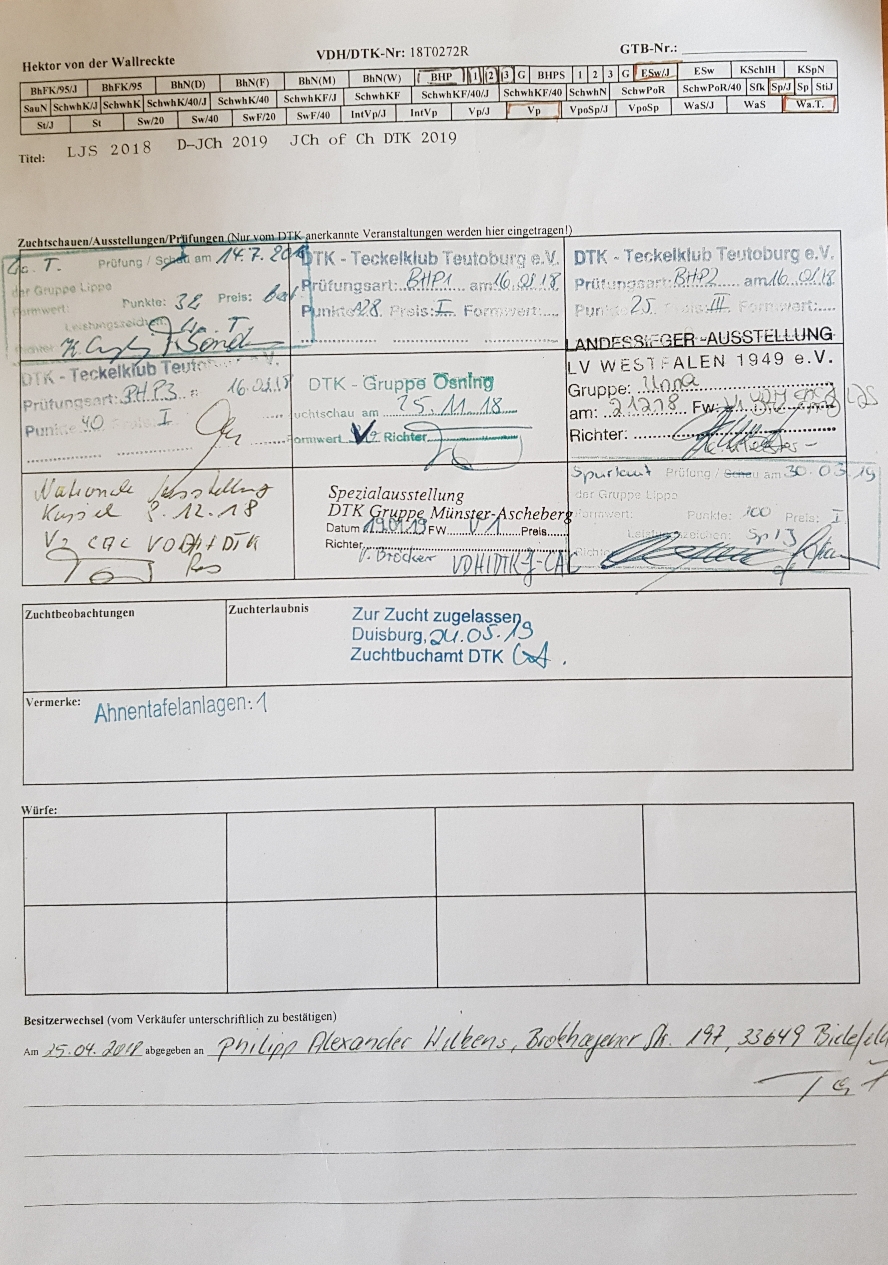 Hektor von der Wallreckte VDH/DTK-Nr: 18T0272R GTB-Nr.:
BhFK/95/J BhFK/95 BhN(D) BhN(F) BhN(M) BhN(W) BHP 1 2 3 G BHPS 1 2 3 G ESw/J ESw KSchlH KSpN
SauN SchwhK/J SchwhK SchwhK/40/J SchwhK/40 SchwhKF/J SchwhKF SchwhKF/40/J SchwhKF/40 SchwhN SchwPoR SchwPoR/40 Sfk Sp/J Sp StiJ
St/J St Sw/20 Sw/40 SwF/20 SwF/40 IntVp/J IntVp Vp/J Vp VpoSp/J VpoSp WaS/J WaS Wa.T.
Titel: LJS 2018 D-JCh 2019 JCh of Ch DTK 2019
Zuchtschauen/Ausstellungen/Prüfungen (Nur vom DTK anerkannte Veranstaltungen werden hier eingetragen!)
Prüfung / Schau am 14.7.
der Gruppe Lippe
Formwert: Punkte: 32 Preis:
Leistungszeichen:
Richter
DTK - Teckelklub Teutoburg e.V.
Prüfungsart: BHP1 am 16.
Punkte 128 Preis: I Formwert:
DTK - Teckelklub Teutoburg e.V.
Prüfungsart: BHP2 am 16.
Punkte 25 Preis: III Formwert:
DTK - Teckelklub Teutoburg e.V.
Prüfungsart: BHP3 16.
Punkte 40 Preis: I
DTK - Gruppe Osning
Zuchtschau am 25.11.18
Formwert Richter
LANDESSIEGER-AUSSTELLUNG
LV WESTFALEN 1949 e.V.
Gruppe: Unna
am: 21218 Fw.
Richter:
Nationale Ausstellung
Kassel 8.12.18
V2 CAC VDH/DTK
Res
Spezialausstellung
DTK Gruppe Münster-Ascheberg
Datum 19.01.19 FW V 1 Preis
Richter V. Bröcker VDH/DTK J-CAC
Spurlaut Prüfung / Schau am 30.03.19
der Gruppe Lippe
Formwert: Punkte: 100 Preis: I
Leistungszeichen: Sp/J
Richter
Zuchtbeobachtungen
Zuchterlaubnis
Zur Zucht zugelassen
Duisburg, 24.05.19
Zuchtbuchamt DTK
Vermerke: Ahnentafelanlagen: 1
Würfe:
Besitzerwechsel (vom Verkäufer unterschriftlich zu bestätigen)
Am 25.04.2018 abgegeben an Philipp Alexander Wilkens, Brokhagener Str. 197, 33649 Bielefeld